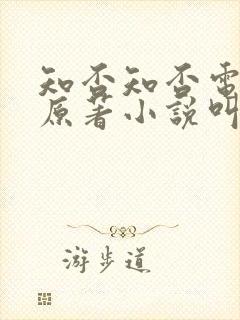 知否知否電
原著小說叫
游步道